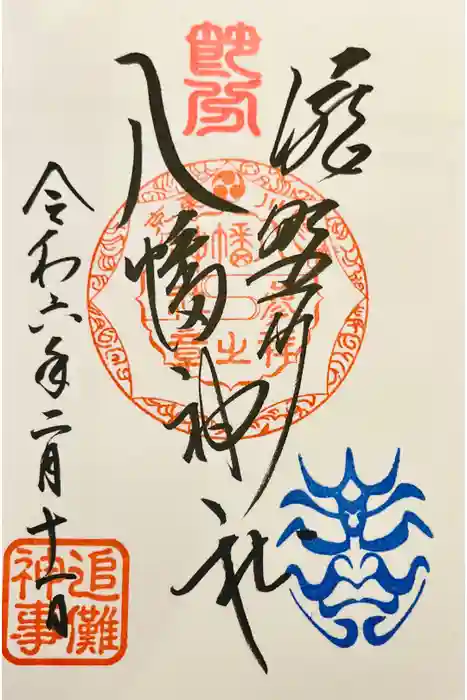 節分
瀧野川
八幡神社
令和六年二月十一日
追儺
神事